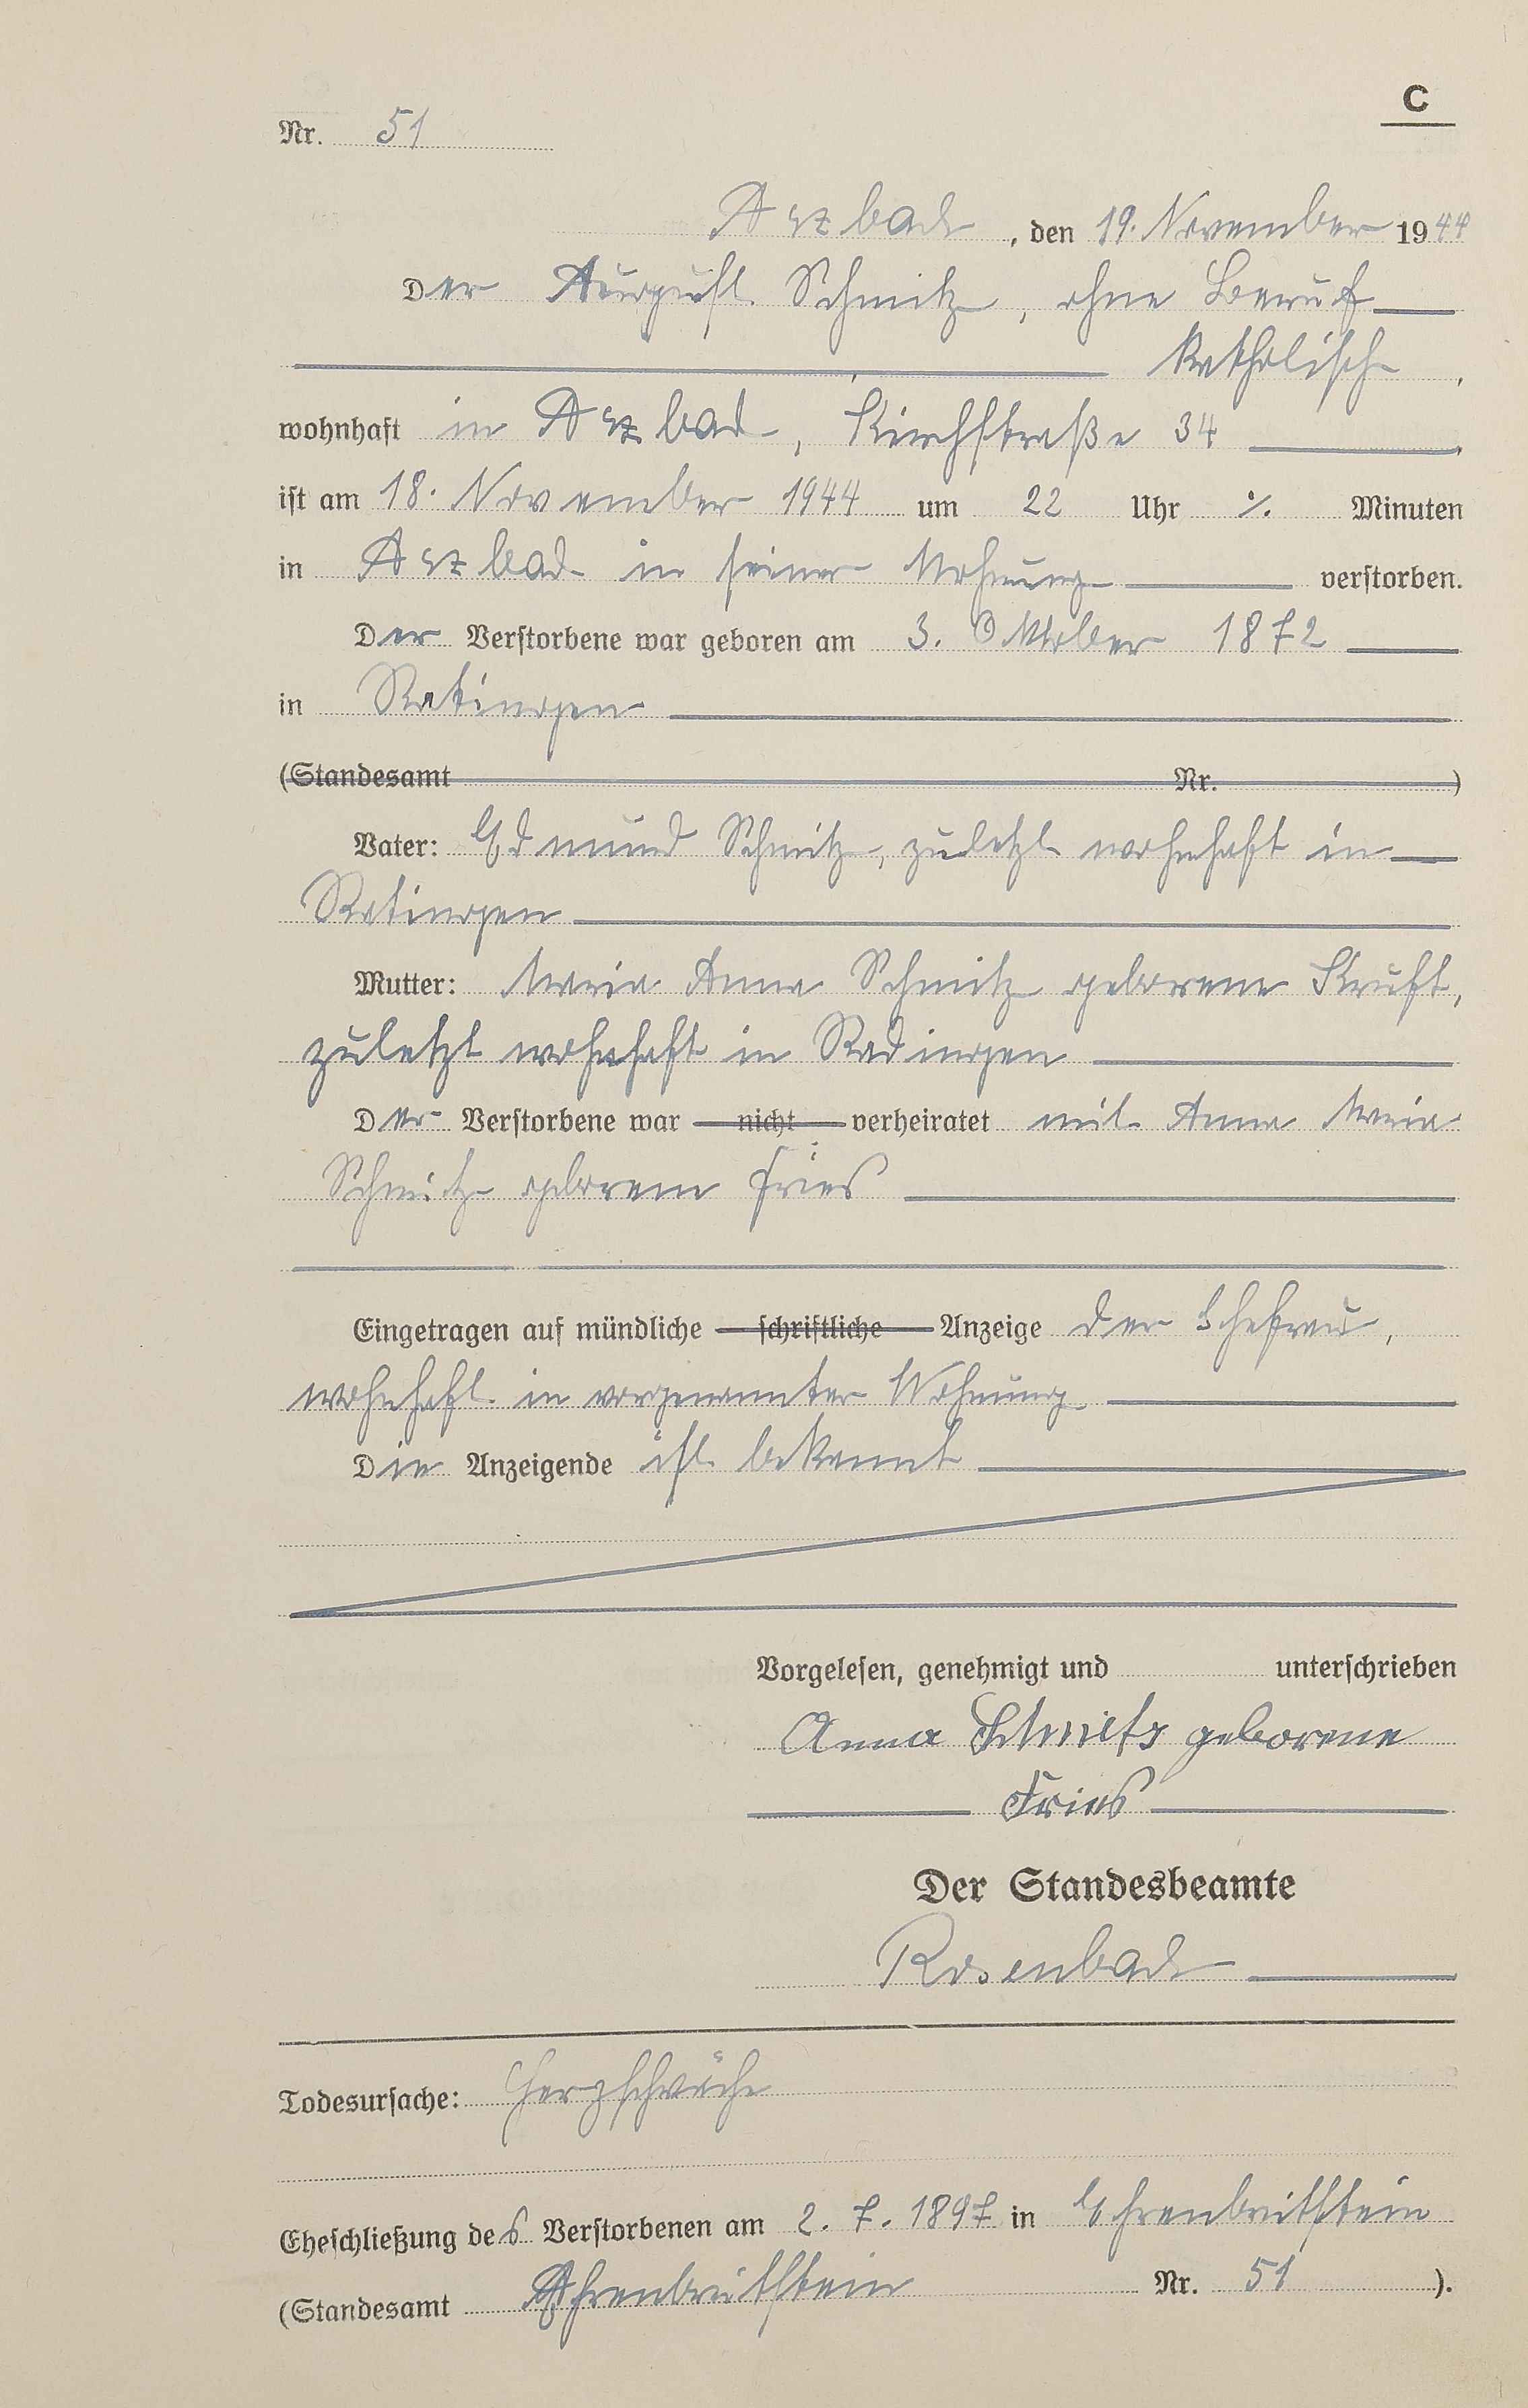 C
Nr. 51
Arzbach, den 19. November 1944
Der August Schmitz, ohne Beruf
katholisch,
wohnhaft in Arzbach, Kirchstraße 34,
ist am 18. November 1944 um 22 Uhr ∕. Minuten
in Arzbach in seiner Wohnung verstorben.
Der Verstorbene war geboren am 3. Oktober 1872
in Ratingen
(Standesamt Nr. )
Vater: Edmund Schmitz, zuletzt wohnhaft in
Ratingen
Mutter: Maria Anna Schmitz geborene Kruft,
zuletzt wohnhaft in Radingen
Der Verstorbene war nicht verheiratet mit Anna Maria
Schmitz geborene Fries
Eingetragen auf mündliche schriftliche Anzeige der Ehefrau,
wohnhaft in vorgenannter Wohnung
Die Anzeigende ist bekannt
Vorgelesen, genehmigt und unterschrieben
Anna Schmitz geborene
Fries
Der Standesbeamte
Rosenbach
Todesursache: Herzschwäche
Eheschließung des Verstorbenen am 2. 7. 1897 in Ehrenbreitstein
(Standesamt Ehrenbreitstein Nr. 51 ).